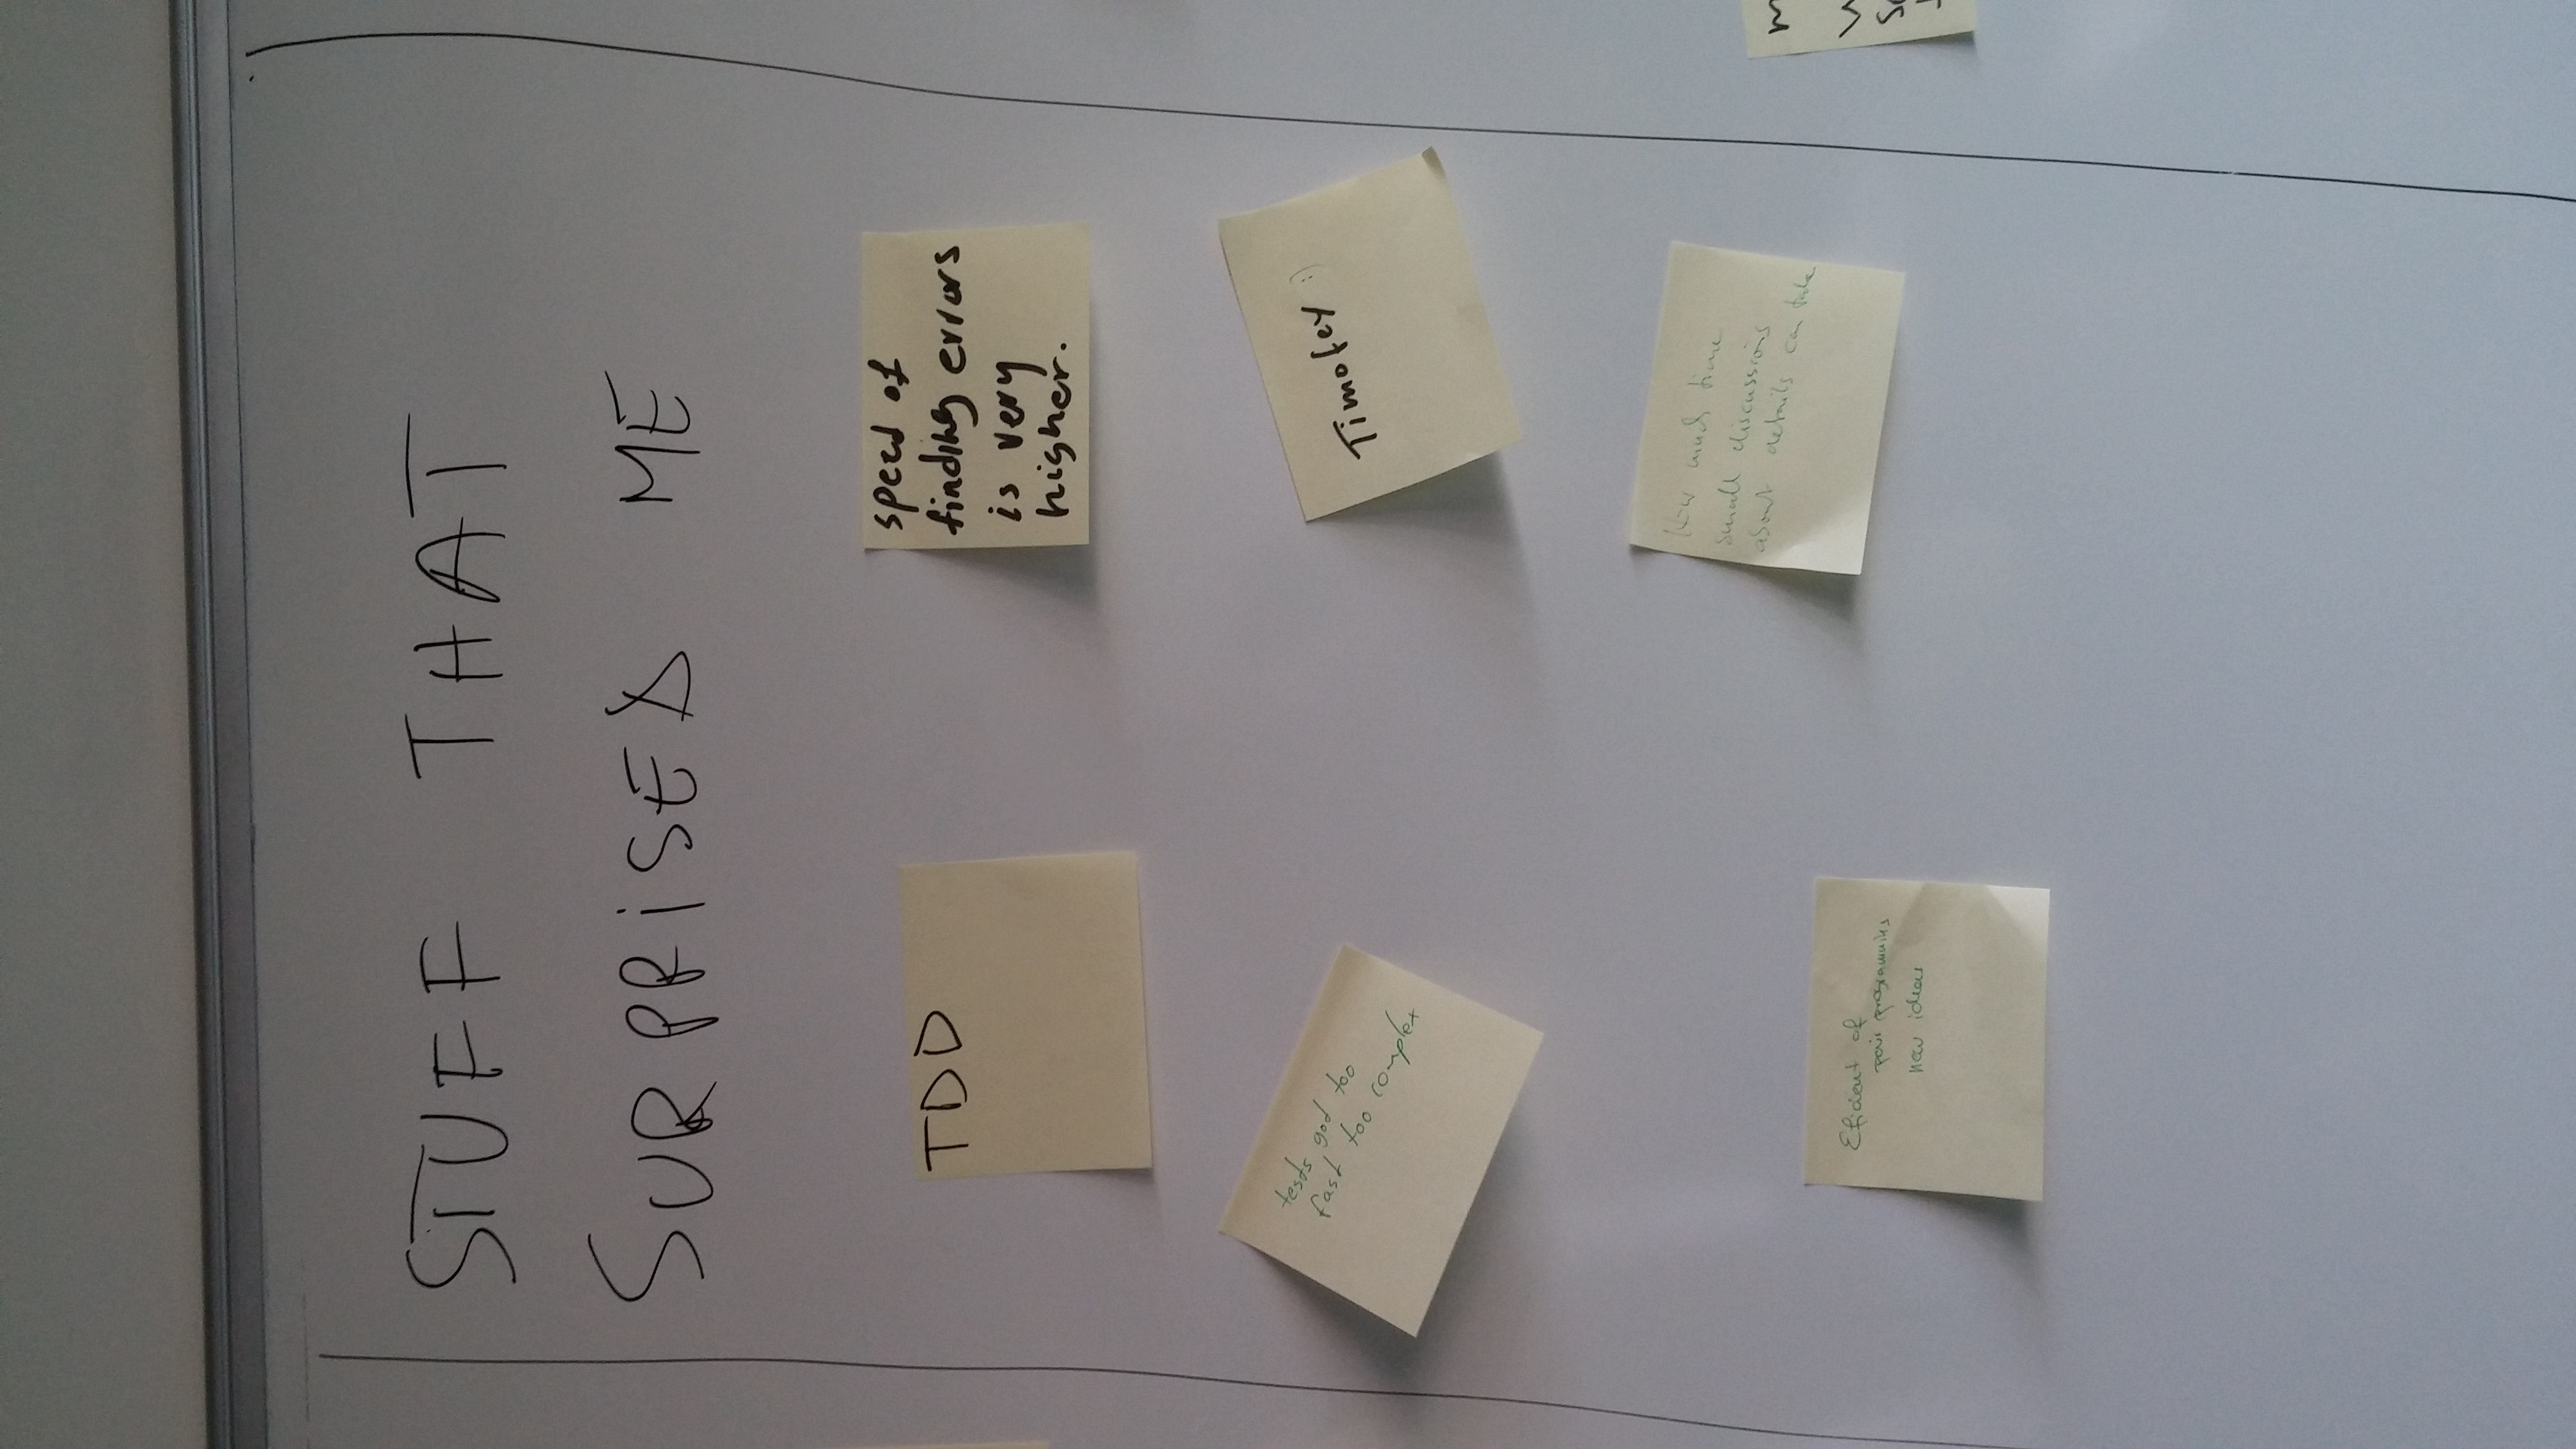 STUFF THAT
SURPRISED ME
TDD
speed of
finding errors
is very
higher.
tests god too
fast too complex
Timofey :)
How much time
small discussions
about details can take
Eficient of
pair programming
new ideas